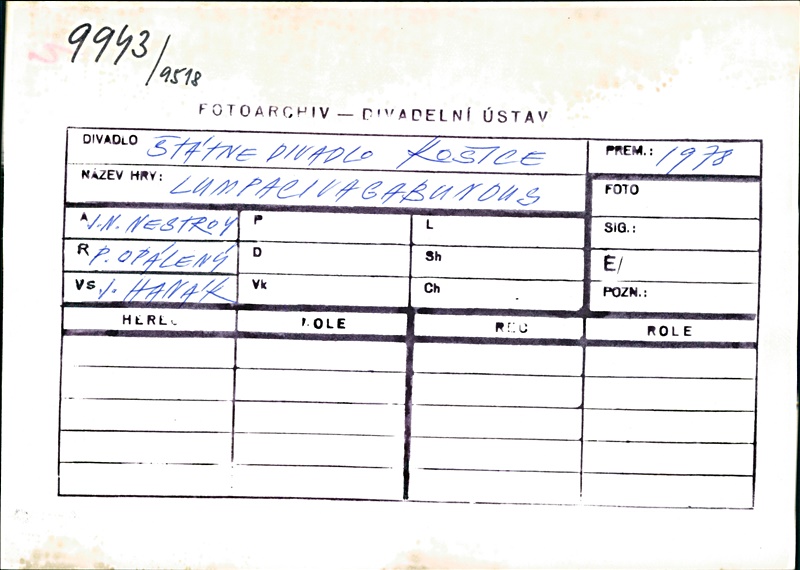 9943/9518
FOTOARCHIV — DIVADELNÍ ÚSTAV
DIVADLO ŠTÁTNE DIVADLO KOŠICE
PREM.: 1978
NÁZEV HRY: LUMPACIVAGABUNDUS
FOTO
A J.N. NESTROY P L
SIG.:
R P. OPÁLENÝ D Sh
Ë/
Vs. J. HANÁK Vk Ch
POZN.:
HEREC ROLE REC ROLE